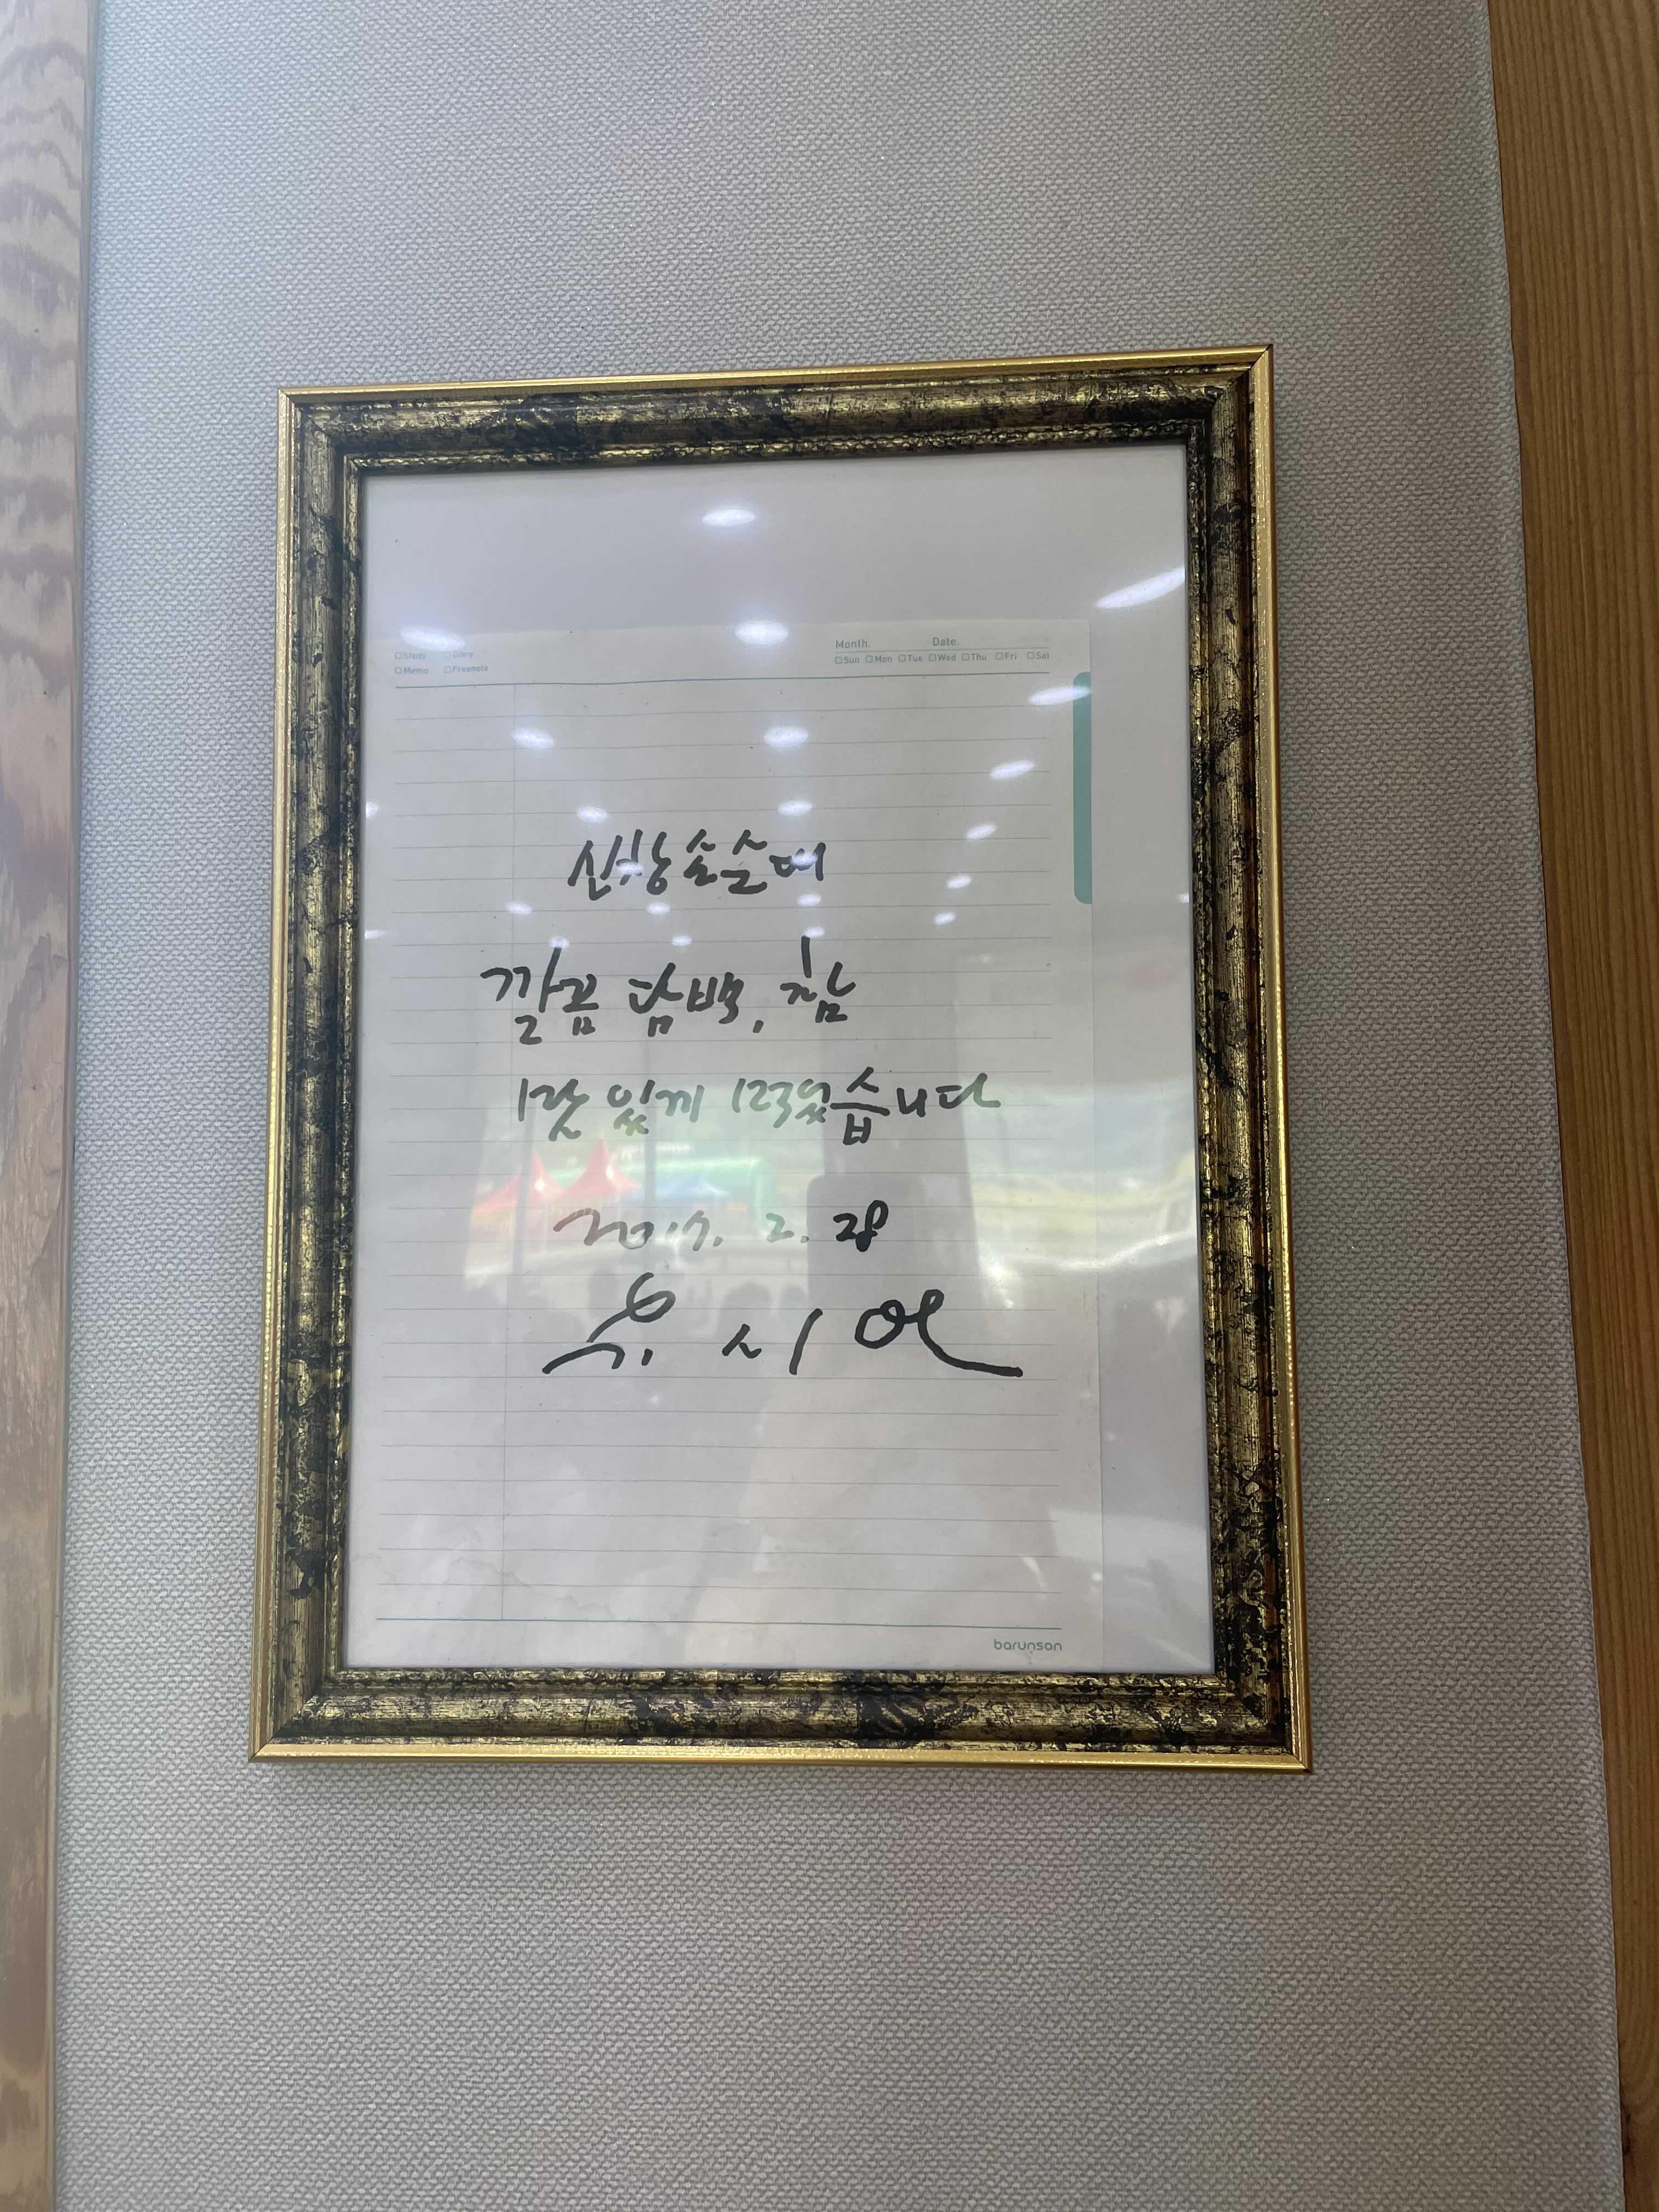 □Study □Diary
□Memo □Freenote
Month. Date.
□Sun □Mon □Tue □Wed □Thu □Fri □Sat
신창손순대
깔끔 담백, 참
맛 있게 먹었습니다
2017. 2. 28
유 시
barunson